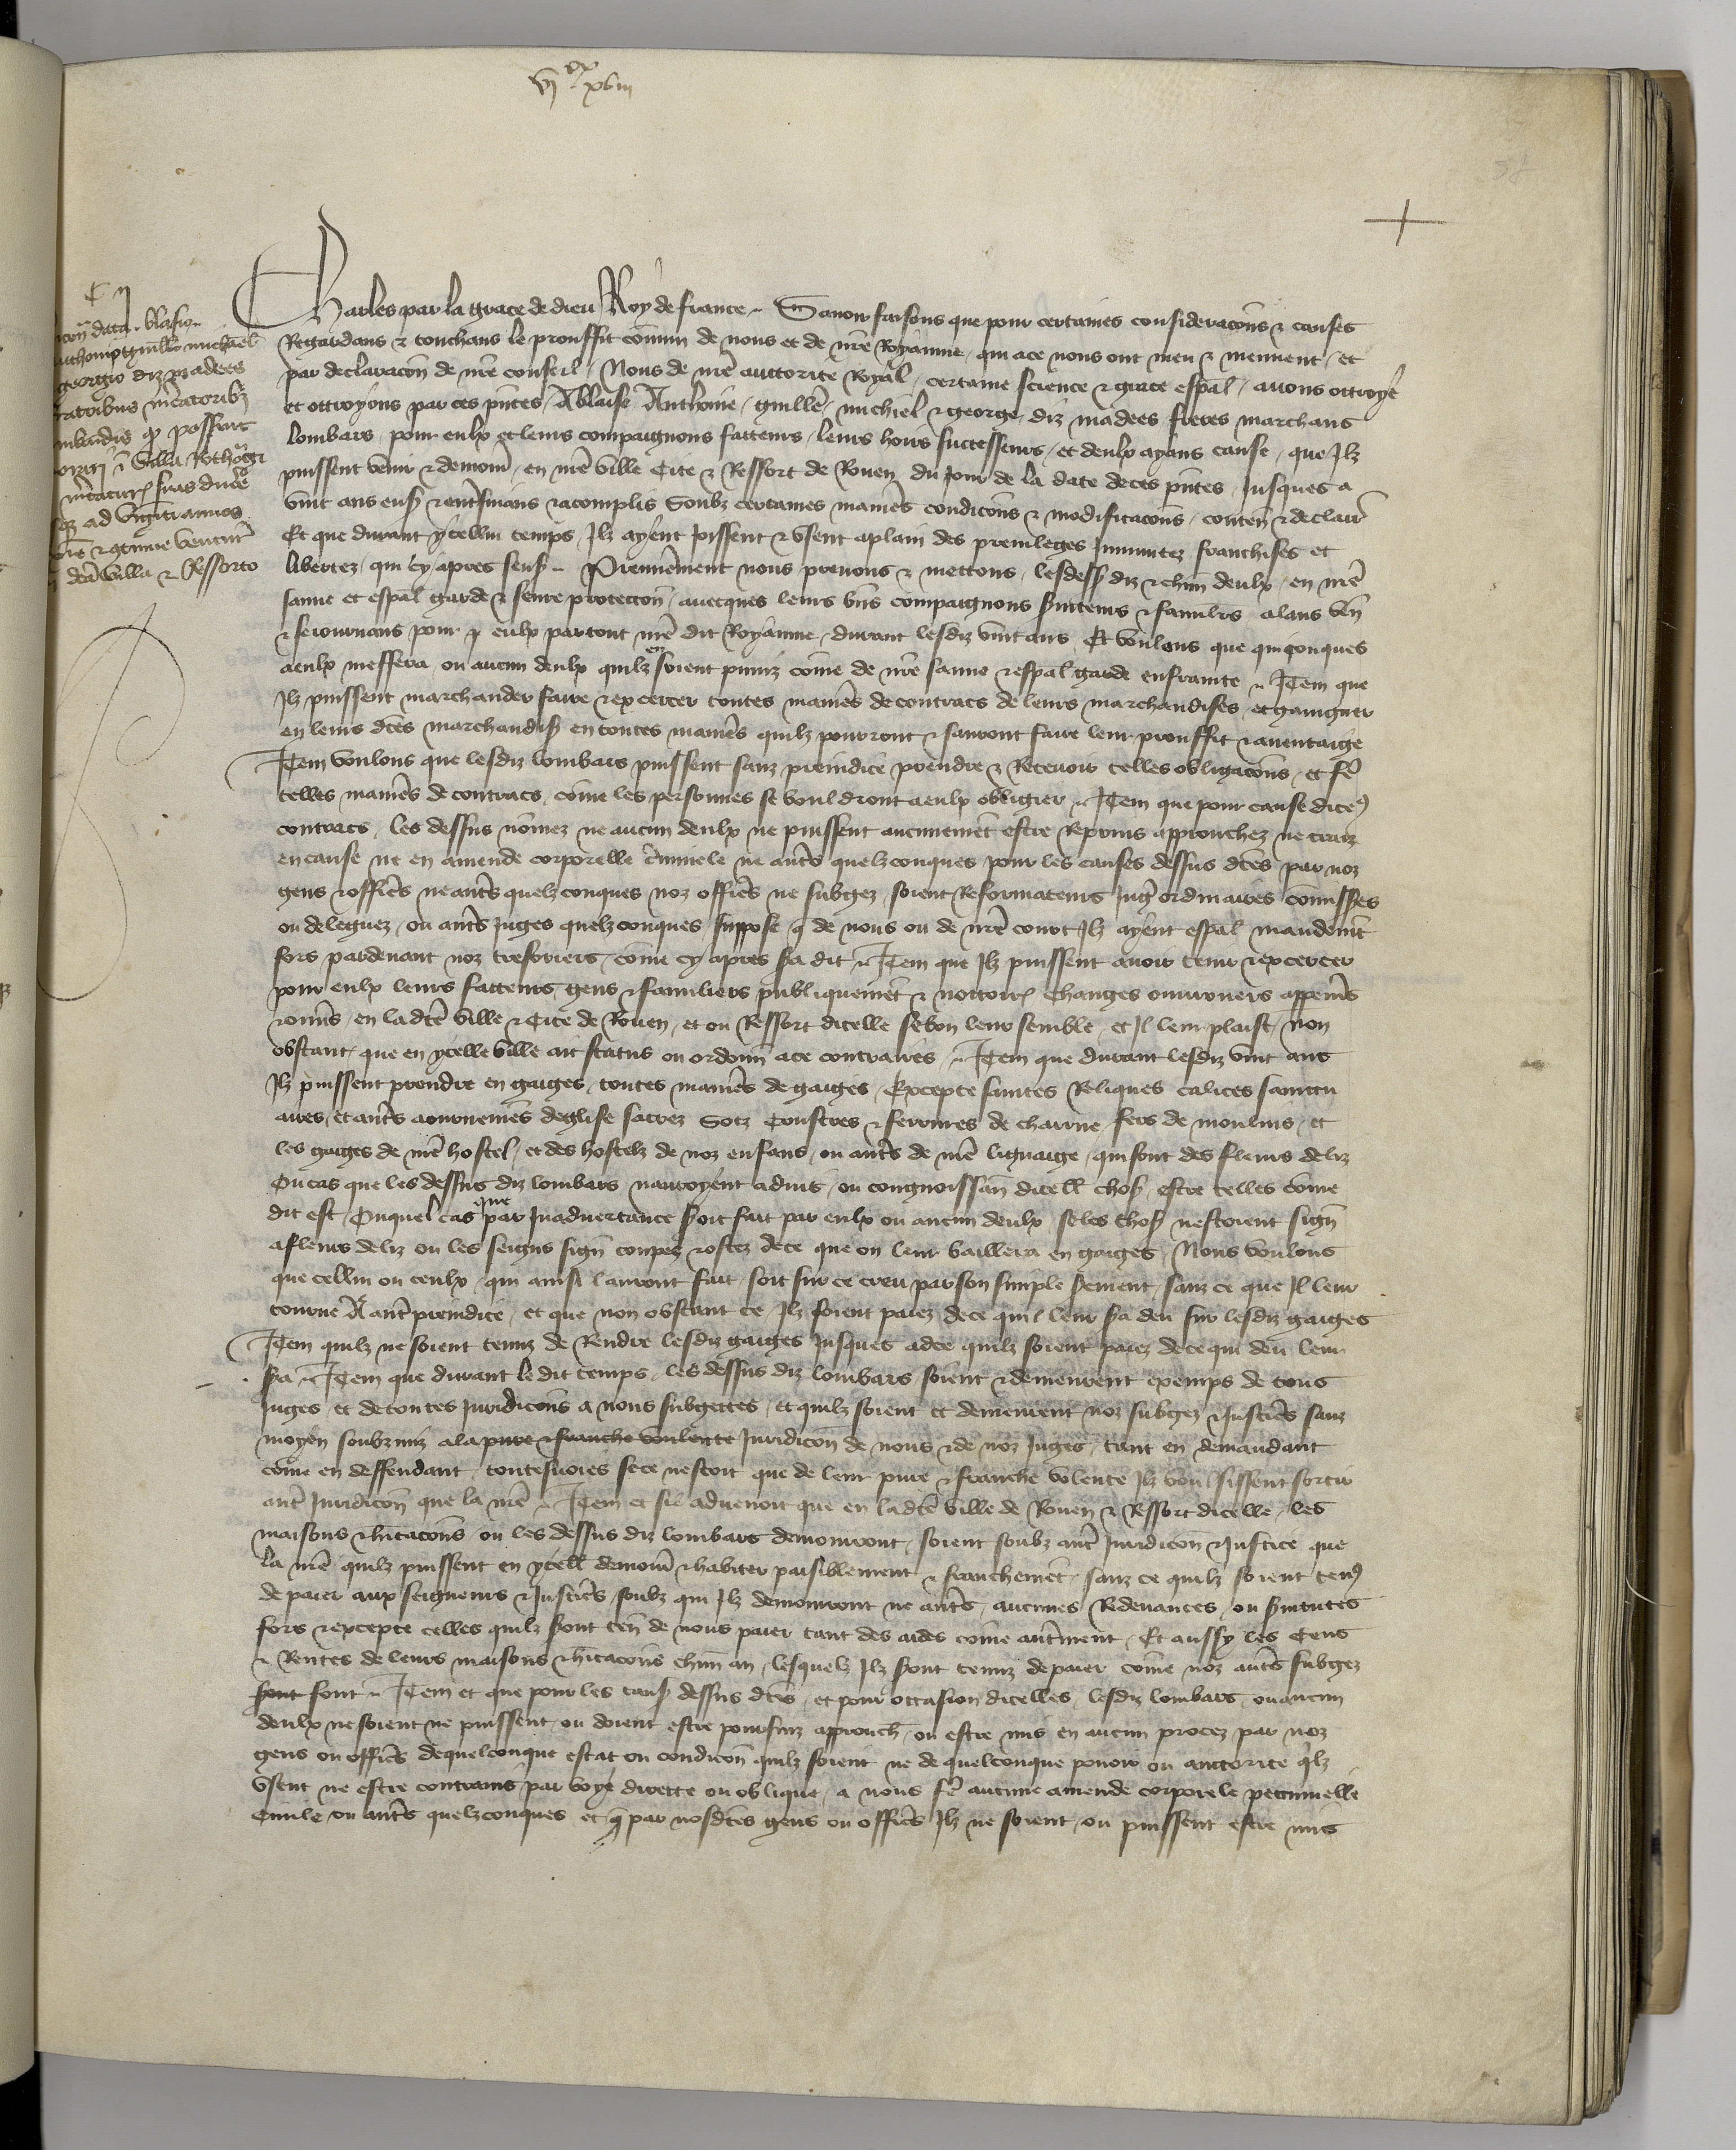 vj xx xviii
C n
data blasio
Anthonio Guillo michael
georgio diz madees
fratribus mercatoribz
lombardis qd possint
morari i villa Rothom
mercaturas suas ducere
usqz ad viginti annos
dca villa & Ressorto
Charles par la grace de dieu Roy de france. Sauoir faisons que pour certaines consideracons & causes
Regardans & touchans le prouffit comun de nous et de nre Royaume qui ace nous ont meu & meuuent et
par declaracon de nre conseil Nous de nre auctorite Royal certaine science & grace espal auons ottroye
et ottroyons par ces pntes Ablaise Anthoine guille michiel & george diz madees freres marchans
lombars pour eulx et leurs compaignons facteurs leurs hoirs successeurs et deulx ayans cause que Jlz
puissent venir & demour en nre ville Cite & Ressort de Rouen du jour de la date de ces pntes Jusques a
vint ans ens & entsuians & acomplis Soubz certaines manies condicons & modificacons conten & declair
Et que durant ycellui temps Jlz ayent joissent & vsent aplain des preuileges jmmunitez franchises et
libertez qui cy apres sens. Premement nous prenons & mettons lesdess diz & chun deulx en nre
sauue et espal garde & seure proteccon auecques leurs bns compaignons suiteurs & familrs alans ven
& seiournans pour & eulx partout nre dit Royaume durant lesdiz vint ans Et voulons que quiconques
aeulx meffera ou aucun deulx quilz en soient puniz come de nre sauue & espal garde enfrainte. Jtem que
Jlz puissent marchander faire & excercer toutes manies de contracs de leurs marchandises et gaingner
en leurs dces marchandis en toutes manies quilz pourront & sauront faire leur prouffit & auentaige
Jtem voulons que lesdiz lombars puissent sanz preiudice prendre & Receuoir telles obligacons et fe
telles manies de contracs come les personnes se vouldront aeulx obligier. Jtem que pour cause diceulx
contracs les dessus nomez ne aucun deulx ne puissent aucunemet estre Reprins approuchez ne traiz
encause ne en amende corporelle criminele ne autres quelzconques pour les causes dessus dces par noz
gens & officrs ne autres quelzconques noz officrs ne subgez soient Reformateurs juges ordinaires commisses
ou deleguez ou autres juges quelzconques suppose q de nous ou de nre court Jlz ayent espal mandemt
fors pardeuant noz tresoriers come cy apres sra dit. Jtem que Jlz puissent auoir tenir & excercer
pour eulx leurs facteurs gens & familiers publiquemet & nottoirs Changes ouuroners appens
& ouurs en la dce ville & Cite de Rouen et ou Ressort dicelle se bon leur semble et Jl leur plaist non
obstant que en ycelle ville ait status ou ordonn ace contraires. Jtem que durant lesdiz vint ans
Jlz puissent prendre en gaiges toutes manies de gaiges Excepte saintes Reliques calices saintu
aires et autres aournemens deglise sacrez Socz coustres & ferrures de charrue fers de moulins et
les gaiges de nre hostel et des hostelz de noz enfans ou autres de nre lignaige qui sont des fleurs deliz
Ou cas que les dessus diz lombars nauroyent aduis ou congnoissan dicell chos estre telles come
dit est Ouquel cas que par Jnaduertance soit fait par eulx ou aucun deulx se les chos nestoient sign
afleurs deliz ou les seigns sign coupez & ostez dece que on leur baillera en gaiges Nous voulons
que cellui ou ceulx qui ainsi lauront fait soit sur ce creu par son simple serement sanz ce que Jl leur
tourne A autre preiudice et que non obstant ce Jlz soient paiez dece quil leur sra deu sur lesdiz gaiges
Jtem quilz ne soient tenuz de Rendre lesdiz gaiges Jusques adce quilz soient paiez dece qui deu leur
sra. Jtem que durant le dit temps les dessus diz lombars soient & demeurent exemps de tous
Juges et de toutes Juridicons a nous subgettes et quilz soient et demeurent noz subgez & Justices sanz
moyen soubzmiz ala pure & franche voulente Juridicon de nous & de noz Juges tant en demandant
come en deffendant toutesuoies se ce nestoit que de leur pure & franche volente Jlz voulsissent sortir
autre Juridicon que la nre. Jtem et sil aduenoit que en ladce ville de Rouen & Ressort dicelle les
maisons & hitacons ou les dessus diz lombars demourront soient soubz autre Juridicon & Justice que
la nre quilz puissent en ycell demour & habiter paisiblement & franchemet sanz ce quilz soient tenuz
de paier aux seigneurs & Justices soubz qui Jlz demourront ne autres aucunes Redeuances ou suitutes
fors & excepte celles quilz sont ten de nous paier tant des aides come autrement Et aussy les Cens
& Rentes de leurs maisons & hitacons chun an lesquelz Jlz sont tenuz de paier come noz autres subgez
sont font. Jtem et que pour les caus dessus dces et pour occasion dicelles lesdiz lombars ou aucun
deulx ne soient ne puissent ou doient estre poursuiz approuch ou estre mis en aucun procez par noz
gens ou officrs de quelconque estat ou condicon quilz soient ne de quelconque pouoir ou auctorite qlz
vsent ne estre contrains par voye directe ou oblique a nous fe aucune amende corporele peccunielle
Ciuile ou autres quelzconques et q par nosdces gens ou officrs Jlz ne soient ou puissent estre mis